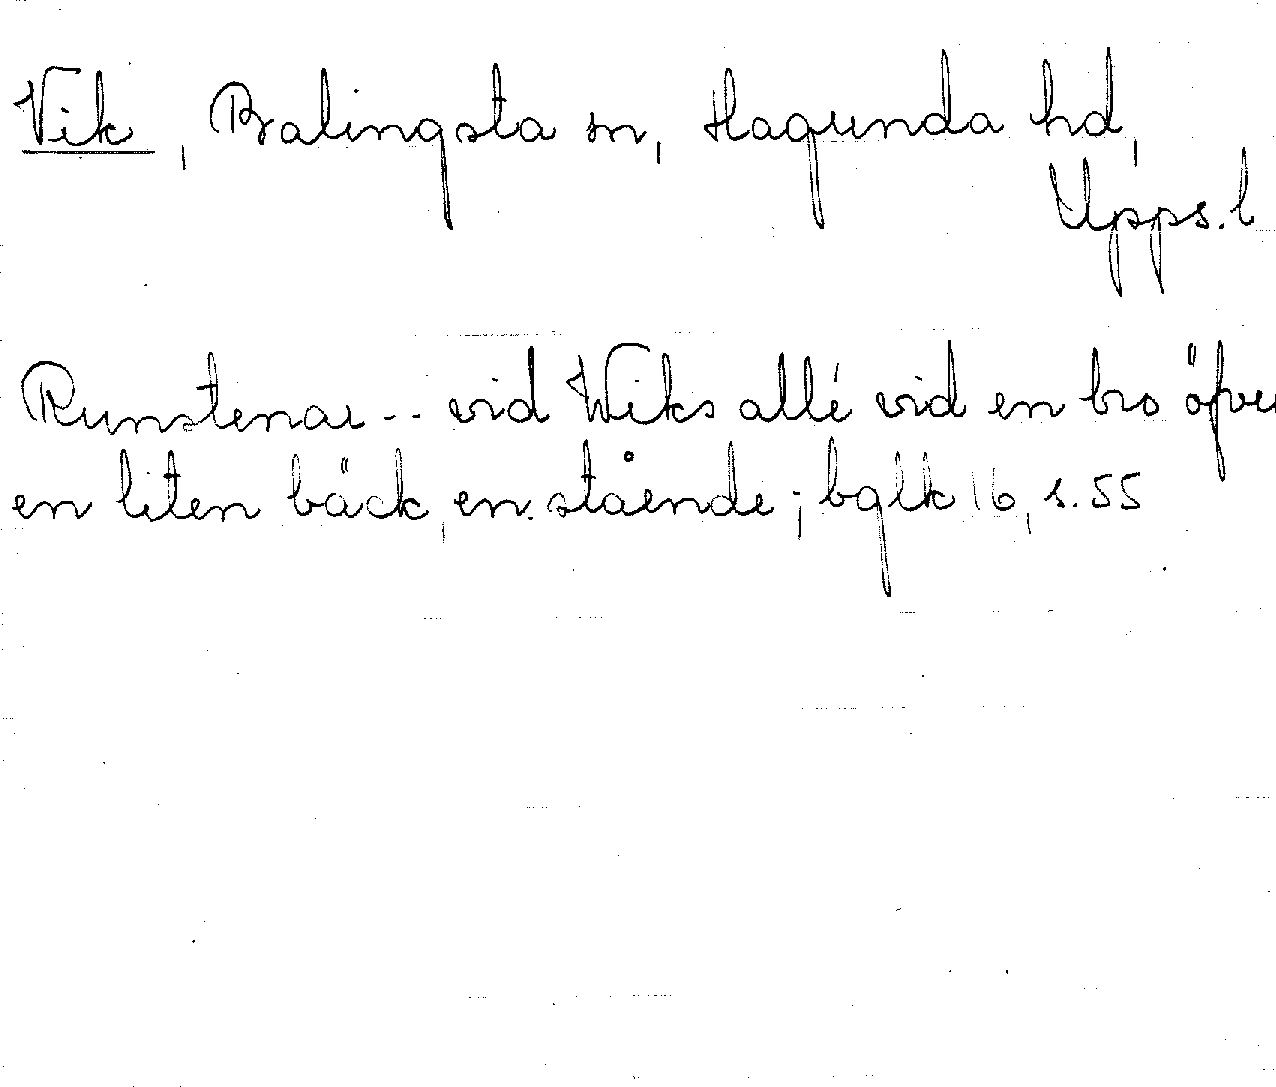 Vik, Balingsta sn, Hagunda hd,
Upps. l
Runstenar -- vid Wiks allé vid en bro öfver
en liten bäck, en stående; bglk 16, s. 55